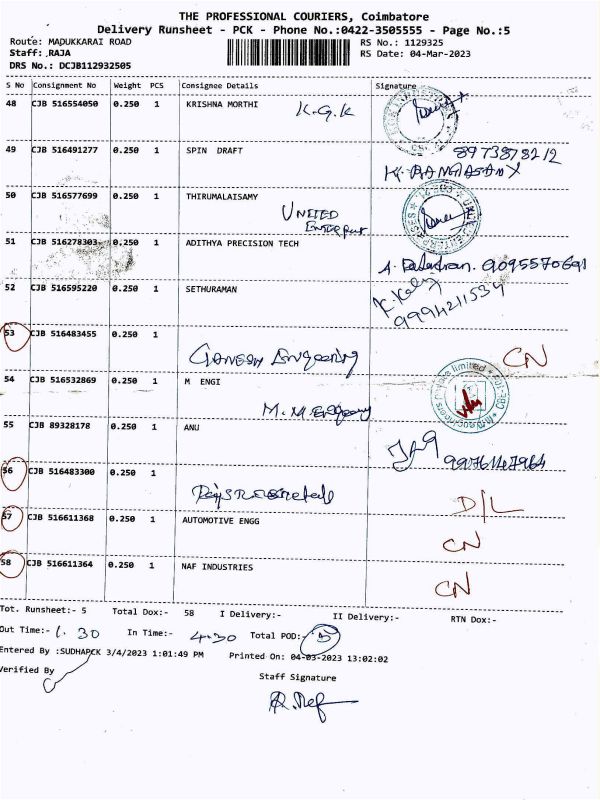 THE PROFESSIONAL COURIERS, Coimbatore
Delivery Runsheet - PCK - Phone No.:0422-3505555 - Page No.:5
Route: MADUKKARAI ROAD RS No.: 1129325
Staff: RAJA RS Date: 04-Mar-2023
DRS No.: DCJB112932505
S No Consignment No Weight PCS Consignee Details Signature
48 CJB 516554050 0.250 1 KRISHNA MORTHI K.G.K
49 CJB 516491277 0.250 1 SPIN DRAFT 8973878212
50 CJB 516577699 0.250 1 THIRUMALAISAMY
UNITED
51 CJB 516278303 0.250 1 ADITHYA PRECISION TECH
9095570691
52 CJB 516595220 0.250 1 SETHURAMAN
9994211534
53 CJB 516483455 0.250 1
GANESH CN
54 CJB 516532869 0.250 1 M ENGI
M.M
55 CJB 89328178 0.250 1 ANU
56 CJB 516483300 0.250 1
D/L
57 CJB 516611368 0.250 1 AUTOMOTIVE ENGG
CN
58 CJB 516611364 0.250 1 NAF INDUSTRIES
CN
Tot. Runsheet:- 5 Total Dox:- 58 I Delivery:- II Delivery:- RTN Dox:-
Out Time:- 1.30 In Time:- 4.30 Total POD:- 5
Entered By :SUDHAPCK 3/4/2023 1:01:49 PM Printed On: 04-03-2023 13:02:02
Verified By
Staff Signature